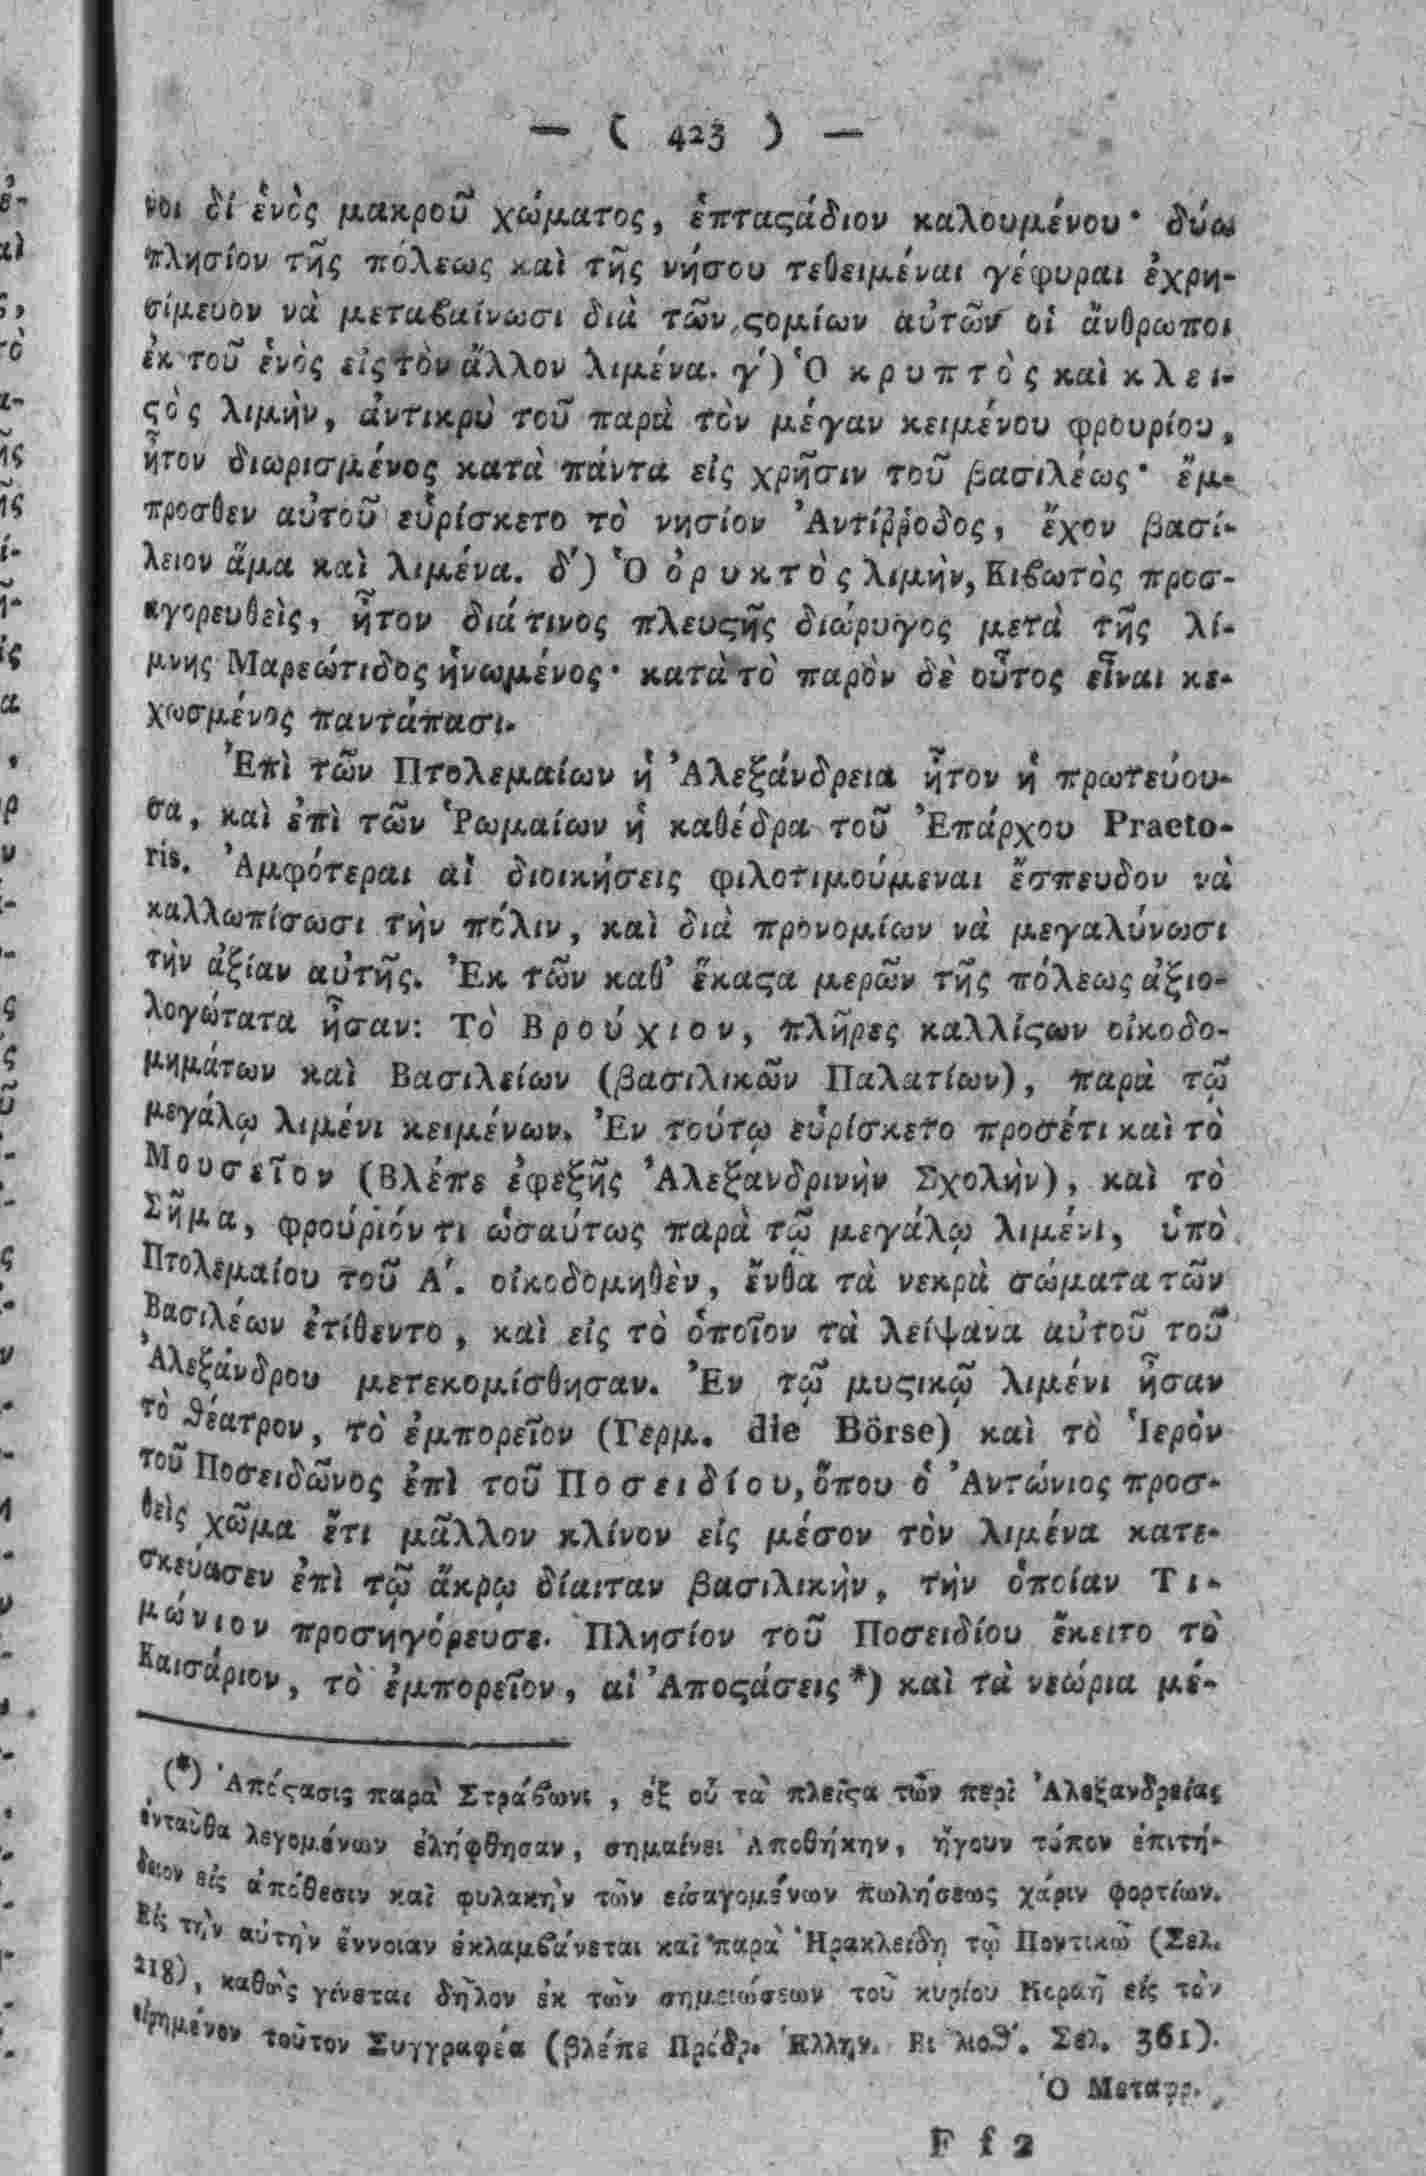 — ( 423 ) —
νοι δἱ ἑνὸς μακροῦ χώματος, ἑπταςάδιον καλουμένου· δύω
πλησίον τῆς πόλεως καὶ τῆς νήσου τεθειμέναι γέφυραι ἐχρη-
σίμευον νὰ μεταβαίνωσι διὰ τῶν ςομίων αὐτῶν οἱ ἄνθρωποι
ἐκ τοῦ ἑνὸς εἰς τὸν ἄλλον λιμένα. γ´) Ὁ κρυπτὸς καὶ κλει-
ςὸς λιμὴν, ἀντικρὺ τοῦ παρὰ τὸν μέγαν κειμένου φρουρίου,
ἦτον διωρισμένος κατὰ πάντα εἰς χρῆσιν τοῦ βασιλέως· ἔμ-
προσθεν αὐτοῦ εὑρίσκετο τὸ νησίον Ἀντίῤῥοδος, ἔχον βασί-
λειον ἅμα καὶ λιμένα. δ´) Ὁ ὀρυκτὸς λιμὴν, Κιβωτὸς προσ-
αγορευθεὶς, ἦτον διάτινος πλευςῆς διώρυγος μετὰ τῆς λί-
μνης Μαρεώτιδος ἡνωμένος· κατὰ τὸ παρὸν δὲ οὗτος εἶναι κε-
χωσμένος παντάπασι.
Ἐπὶ τῶν Πτολεμαίων ἡ Ἀλεξάνδρεια ἦτον ἡ πρωτεύου-
σα, καὶ ἐπὶ τῶν Ῥωμαίων ἡ καθέδρα τοῦ Ἐπάρχου Praeto-
ris. Ἀμφότεραι αἱ διοικήσεις φιλοτιμούμεναι ἔσπευδον νὰ
καλλωπίσωσι τὴν πόλιν, καὶ διὰ προνομίων νὰ μεγαλύνωσι
τὴν ἀξίαν αὐτῆς. Ἐκ τῶν καθ' ἕκαςα μερῶν τῆς πόλεως ἀξιο-
λογώτατα ἦσαν: Τὸ Βρούχιον, πλῆρες καλλίςων οἰκοδο-
μημάτων καὶ Βασιλείων (βασιλικῶν Παλατίων), παρὰ τῷ
μεγάλῳ λιμένι κειμένων. Ἐν τούτῳ εὑρίσκετο προσέτι καὶ τὸ
Μουσεῖον (Βλέπε ἐφεξῆς Ἀλεξανδρινὴν Σχολὴν), καὶ τὸ
Σῆμα, φρούριόν τι ὡσαύτως παρὰ τῷ μεγάλῳ λιμένι, ὑπὸ
Πτολεμαίου τοῦ Α´. οἰκοδομηθὲν, ἔνθα τὰ νεκρὰ σώματα τῶν
Βασιλέων ἐτίθεντο, καὶ εἰς τὸ ὁποῖον τὰ λείψανα αὐτοῦ τοῦ
Ἀλεξάνδρου μετεκομίσθησαν. Ἐν τῷ μυςικῷ λιμένι ἦσαν
τὸ θέατρον, τὸ ἐμπορεῖον (Γερμ. die Börse) καὶ τὸ Ἱερὸν
τοῦ Ποσειδῶνος ἐπὶ τοῦ Ποσειδίου, ὅπου ὁ Ἀντώνιος προσ-
θεὶς χῶμα ἔτι μᾶλλον κλίνον εἰς μέσον τὸν λιμένα κατε-
σκεύασεν ἐπὶ τῷ ἄκρῳ δίαιταν βασιλικὴν, τὴν ὁποίαν Τι-
μώνιον προσηγόρευσε. Πλησίον τοῦ Ποσειδίου ἔκειτο τὸ
Καισάριον, τὸ ἐμπορεῖον, αἱ Ἀποςάσεις *) καὶ τὰ νεώρια μέ-
(*) Ἀπόςασις παρὰ Στράβωνι, ἐξ οὗ τὰ πλεῖςα τῶν περὶ Ἀλεξανδρείας
ἐνταῦθα λεγομένων ἐλήφθησαν, σημαίνει Ἀποθήκην, ἤγουν τόπον ἐπιτή-
δειον εἰς ἀπόθεσιν καὶ φυλακὴν τῶν εἰσαγομένων πωλήσεως χάριν φορτίων.
Εἰς τὴν αὐτὴν ἔννοιαν ἐκλαμβάνεται καὶ παρὰ Ἡρακλείδῃ τῷ Ποντικῷ (Σελ.
218), καθὼς γίνεται δῆλον ἐκ τῶν σημειώσεων τοῦ κυρίου Κοραῆ εἰς τὸν
εἰρημένον τοῦτον Συγγραφέα (βλέπε Πρόδρ. Ἑλλην. Βιβλιοθ´. Σελ. 361).
Ὁ Μεταφρ.
F f 2